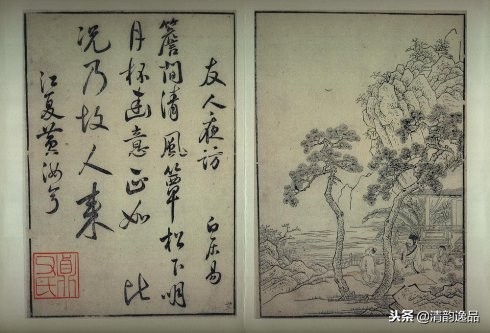 友人夜訪 白居易
簷間清風簟松下明
月杯幽意正如此
况乃故人来
江夏黄汝亨
头条 @清韵逸品